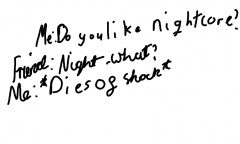 Me:Do you like nightcore?
Friend: Night-what?
Me:*Dies og shock*